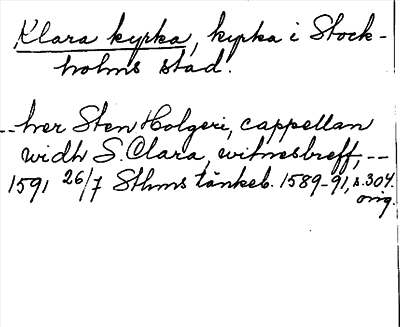 Klara kyrka, kyrka i Stock-
holms stad.
--her Sten Holgeri, cappellan
widh S. Clara, witnesbreff, --
1591 26/7 Sthms tänkeb. 1589-91, s. 304.
orig.